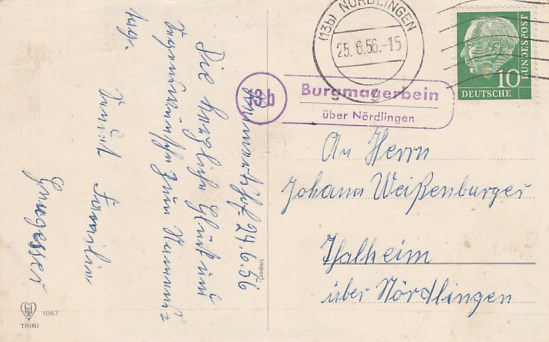 (13b) NÖRDLINGEN
25.6.56.-15
DEUTSCHE
BUNDESPOST
10
13b
Burgmagerbein
über Nördlingen
24.6.56
Die herzlich Glück und
Segenswünsche zum Namens=
tag.
Familie
An Herrn
Johann Weißenburger
Thalheim
über Nördlingen
TRIKI
1067